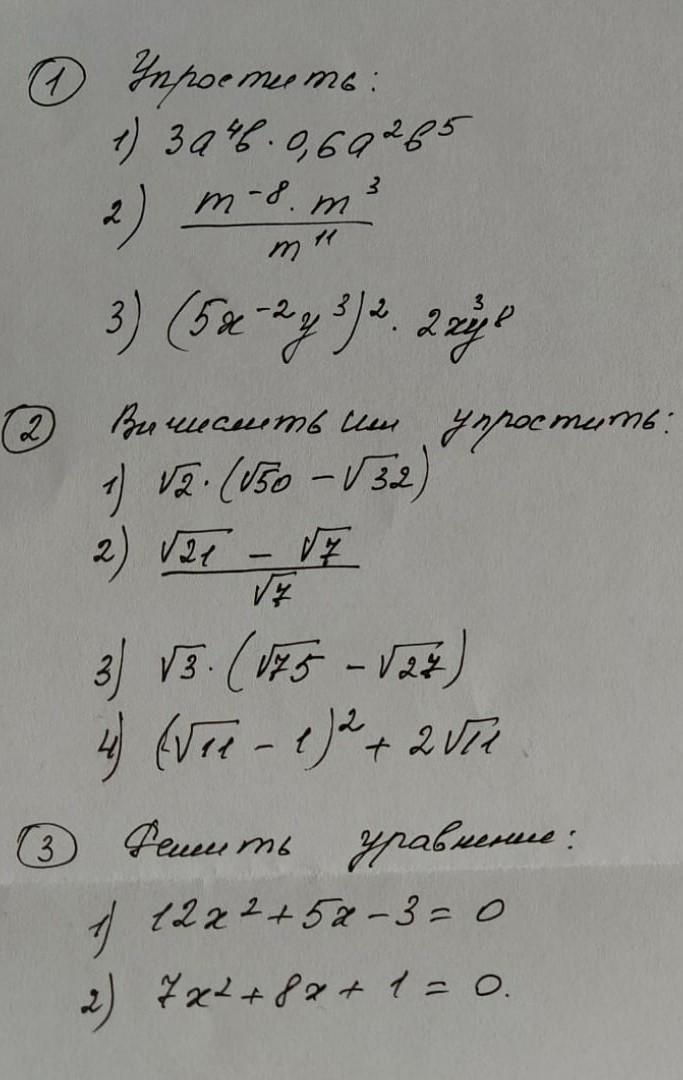 ① Упростить:
1) 3a⁴b · 0,6a²b⁵
2) (m⁻⁸ · m³) / m¹¹
3) (5x⁻²y³)² · 2x³y⁸
② Вычислить или упростить:
1) √2 · (√50 − √32)
2) (√21 − √7) / √7
3) √3 · (√75 − √27)
4) (√11 − 1)² + 2√11
③ Решить уравнение:
1) 12x² + 5x − 3 = 0
2) 7x² + 8x + 1 = 0.